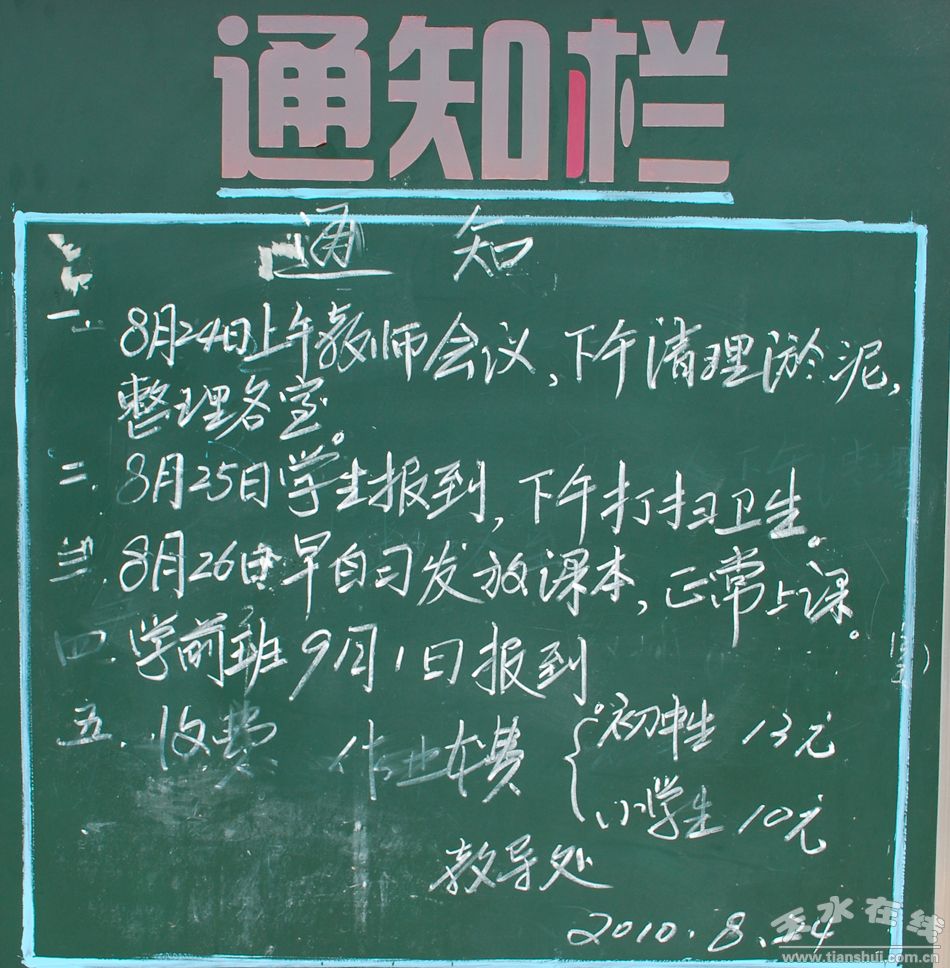 通知栏
通知
一、8月24日上午教师会议,下午清理淤泥,
整理各室。
二、8月25日学生报到,下午打扫卫生。
三、8月26日早自习发放课本,正常上课。
四、学前班9月1日报到
五、收费 作业本费 { 初中生 13元
小学生 10元
教导处
2010.8.24
天水在线
www.tianshui.com.cn